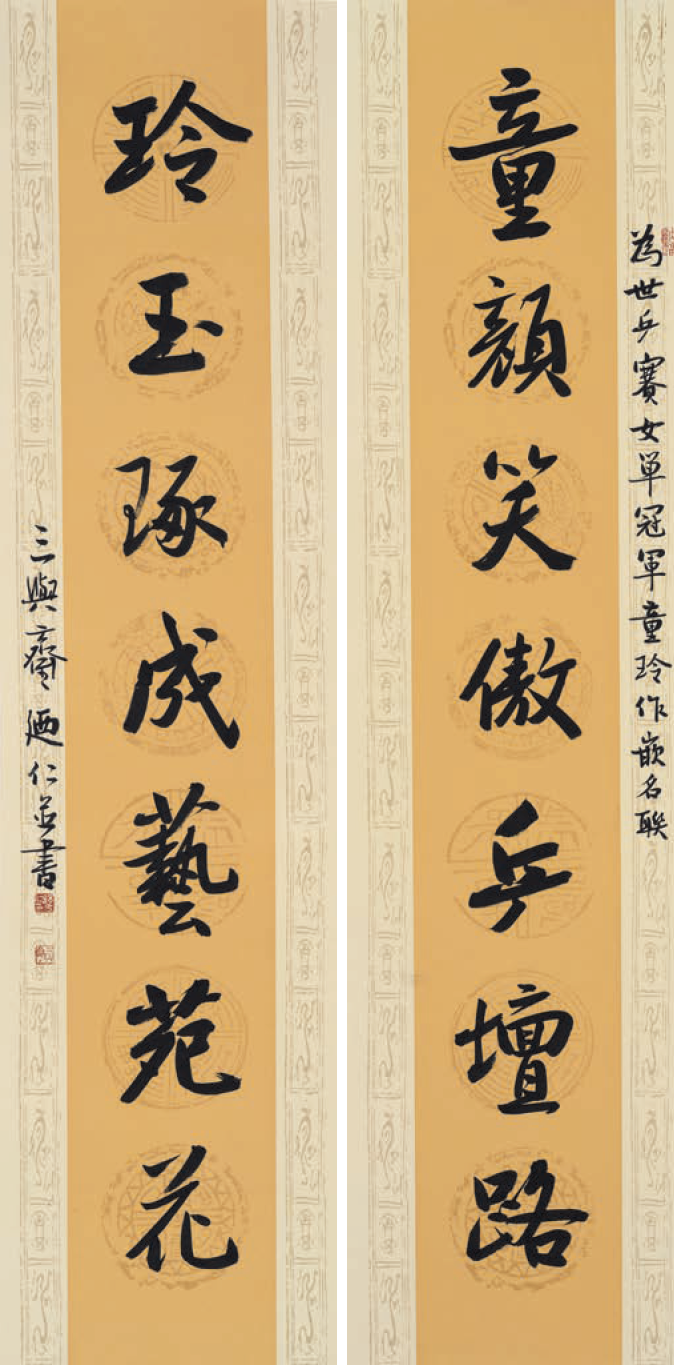 為世乒賽女单冠軍童玲作嵌名聯
童顔笑傲乒壇路
玲玉琢成藝苑花
三與齋廼仁並書